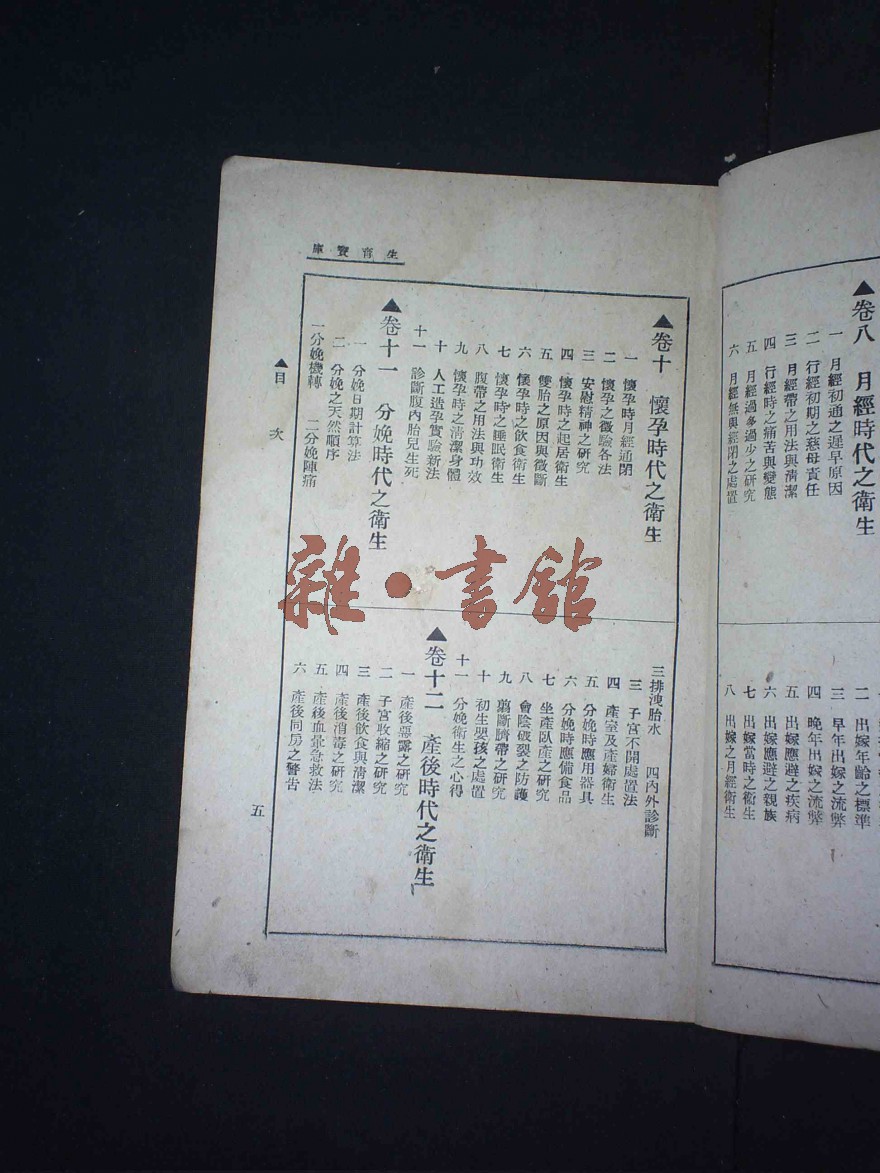 ▲卷八　月經時代之衛生
一　月經初通之遲早原因
二　行經初期之慈母責任
三　月經帶之用法與清潔
四　行經時之痛苦與變態
五　月經過多過少之研究
六　月經無與經閉之處置
二　出嫁年齡之標準
三　早年出嫁之流弊
四　晚年出嫁之流弊
五　出嫁應避之疾病
六　出嫁應避之親族
七　出嫁當時之衛生
八　出嫁之月經衛生
生育寶庫
▲卷十　懷孕時代之衛生
一　懷孕時月經通閉
二　懷孕之徵驗各法
三　安慰精神之研究
四　懷孕時之起居衛生
五　雙胎之原因與徵斷
六　懷孕時之飲食衛生
七　懷孕時之睡眠衛生
八　腹帶之用法與功效
九　懷孕時之清潔身體
十　人工造孕實驗新法
十一　診斷腹內胎兒生死
▲卷十一　分娩時代之衛生
一　分娩日期計算法
二　分娩之天然順序
一分娩機轉　二分娩陣痛
三排洩胎水　四內外診斷
三　子宮不開處置法
四　產室及產婦衛生
五　分娩時應用器具
六　分娩時應備食品
七　坐產臥產之研究
八　會陰破裂之防護
九　剪斷臍帶之研究
十　初生嬰孩之處置
十一　分娩衛生之心得
▲卷十二　產後時代之衛生
一　產後惡露之研究
二　子宮收縮之研究
三　產後飲食與清潔
四　產後消毒之研究
五　產後血暈急救法
六　產後同房之警告
▲目次
五
雜·書館